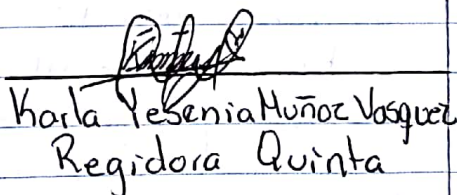 Karla Yesenia Muñoz Vasquez
Regidora Quinta